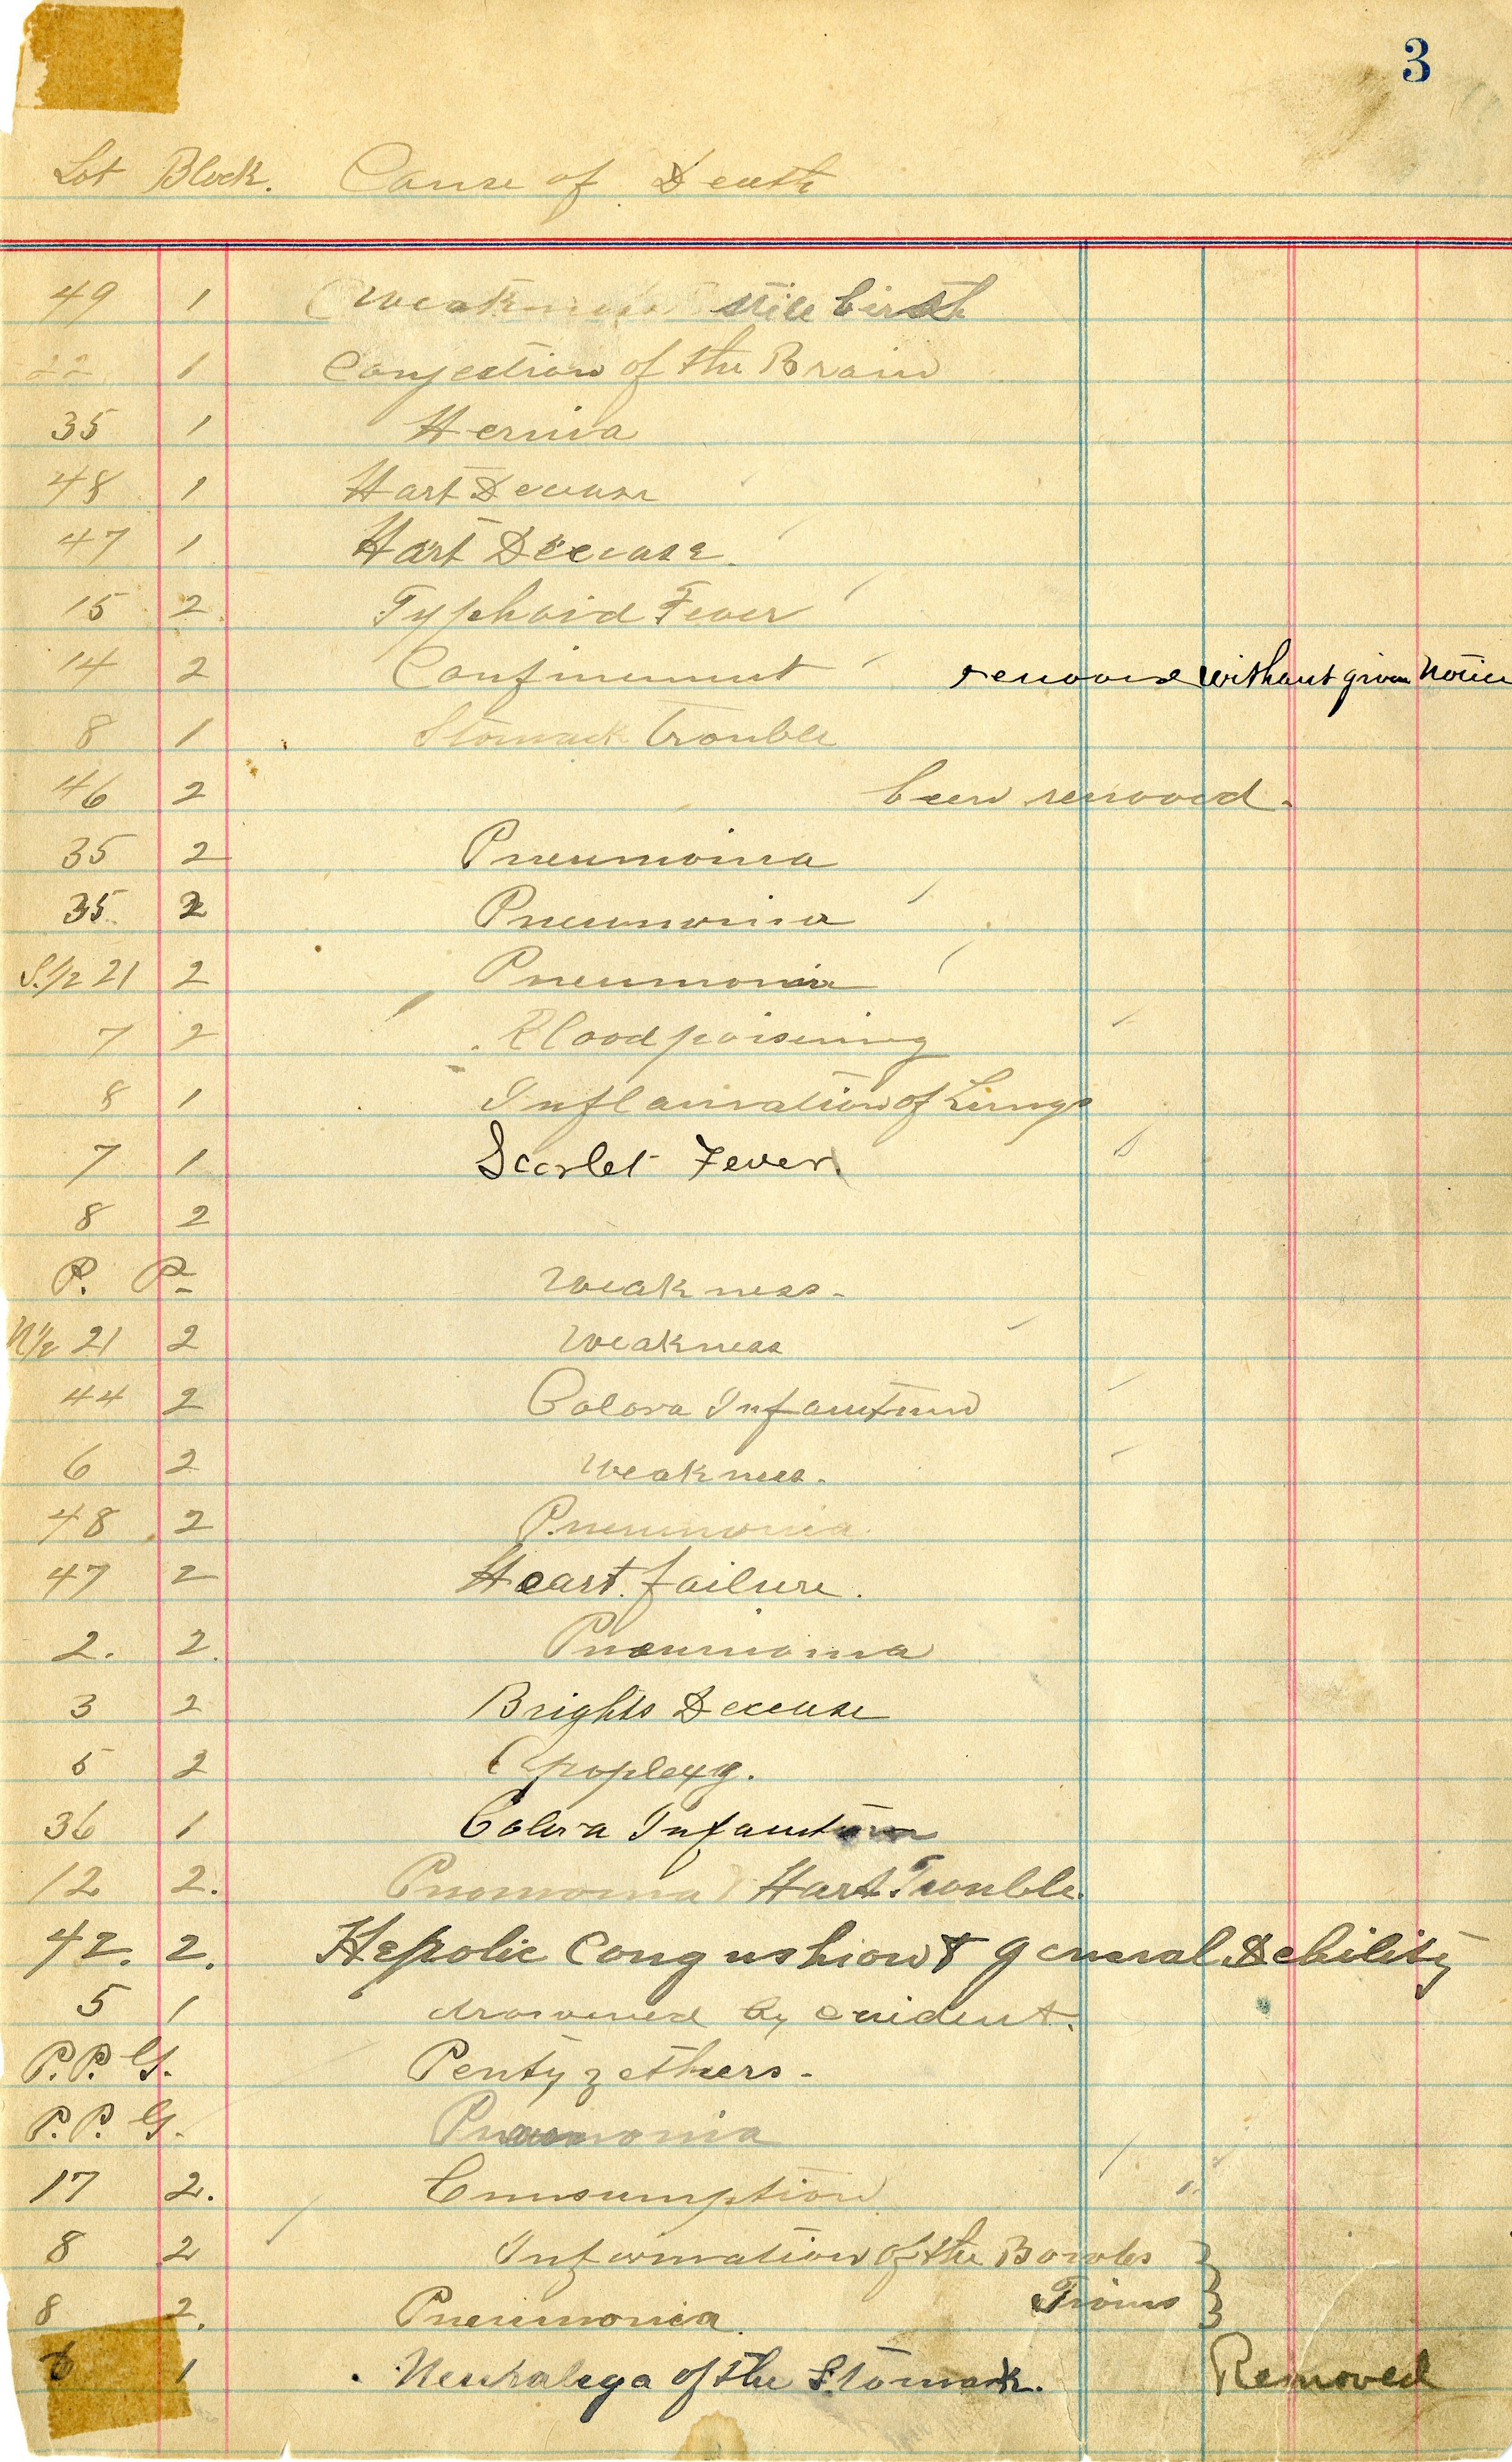 3
Lot Block. Cause of Death
49 1 Weakness still birth
22 1 Conjection of the Brain
35 1 Hernia
48 1 Hart Decease
47 1 Hart Decease.
15 2 Typhoid Fever
14 2 Confinement removed without given Notice
8 1 Stomack trouble
46 2 been removed.
35 2 Pneumonia
35 2 Pneumonia
S.1/2 21 2 Pneumonia
7 2 Bloodpoisening
8 1 Inflamation of Lungs
7 1 Scarlet Fever
8 2
P. P. Weakness.
N1/2 21 2 Weakness
44 2 Colora Infantum
6 2 Weakness.
48 2 Pneumonia
47 2 Heart failure.
2. 2. Pneumonia
3 2 Brights Decease
5 2 Apoplexy.
36 1 Colora Infantum
12 2. Pnomonia Hart Trouble.
42. 2. Hepolic Congushion & general Debility
5 1 drowned by accident.
P.P. G.
P.P. G. Pneumonia
17 2. Consumption
8 2 Information of the Bowles
8 2. Pneumonia. Twins
6 1 Neuralega of the Stomack. Removed